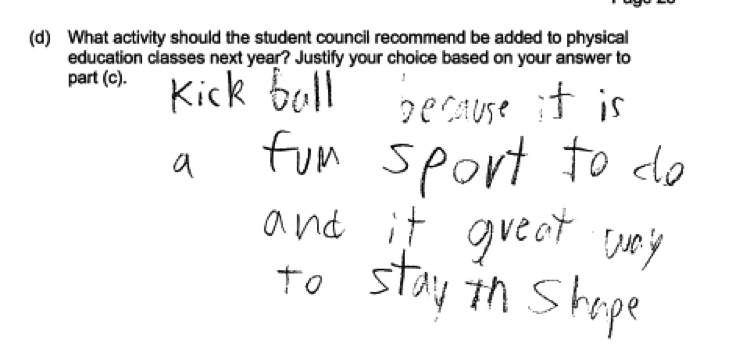 (d) What activity should the student council recommend be added to physical
education classes next year? Justify your choice based on your answer to
part (c).
Kick ball because it is
a fun sport to do
and it great way
to stay in shape